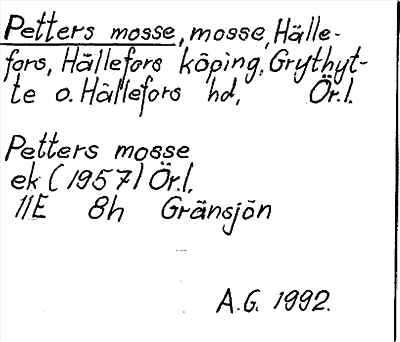 Petters mosse, mosse, Hälle-
fors, Hällefors köping, Grythyt-
te o. Hällefors hd, Ör.l.
Petters mosse
ek (1957) Ör.l.
11E 8h Gränsjön
A.G. 1992.